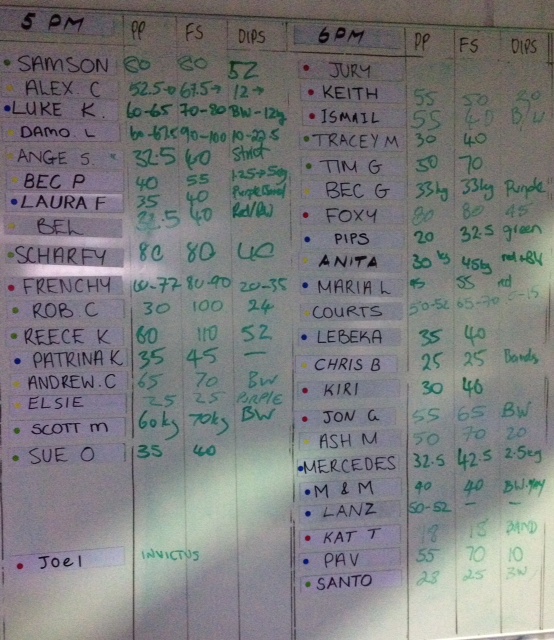 5 PM PP FS DIPS
SAMSON 80 80 52
ALEX C 52.5→ 67.5→ 12→
LUKE K. 60-65 70-80 BW-12kg
DAMO L 60-67.5 90-100 10-22.5
ANGE S. 32.5 60 Strict
BEC P 40 55
LAURA F 35 40 Purple Band
BEL 32.5 40 Red/BW
SCHARFY 80 80 40
FRENCHY 60-77 80-90 20-35
ROB C 30 100 24
REECE K 60 110 52
PATRINA K 35 45 —
ANDREW.C 65 70 BW
ELSIE 25 25 PURPLE
SCOTT M 60kg 70kg BW
SUE O 35 40
Joel INVICTUS
6PM PP FS DIPS
JURY
KEITH 55 50 30
ISMAIL 55 60 B/W
TRACEY M 30 40
TIM G 50 70
BEC G 33kg 33kg Purple
FOXY 80 80 45
PIPS 20 32.5 green
ANITA 30kg 45kg red+BW
MARIA L 55 red
COURTS 50-52 65-70 5-15
LEBEKA 35 40
CHRIS B 25 25 Bands
KIRI 30 40
JON G 55 65 BW
ASH M 50 70 20
MERCEDES 32.5 42.5 2.5kg
M & M 40 40 BW
LANZ 50-52 — —
KAT T 18 18 BAND
PAV 55 70 10
SANTO 23 25 BW